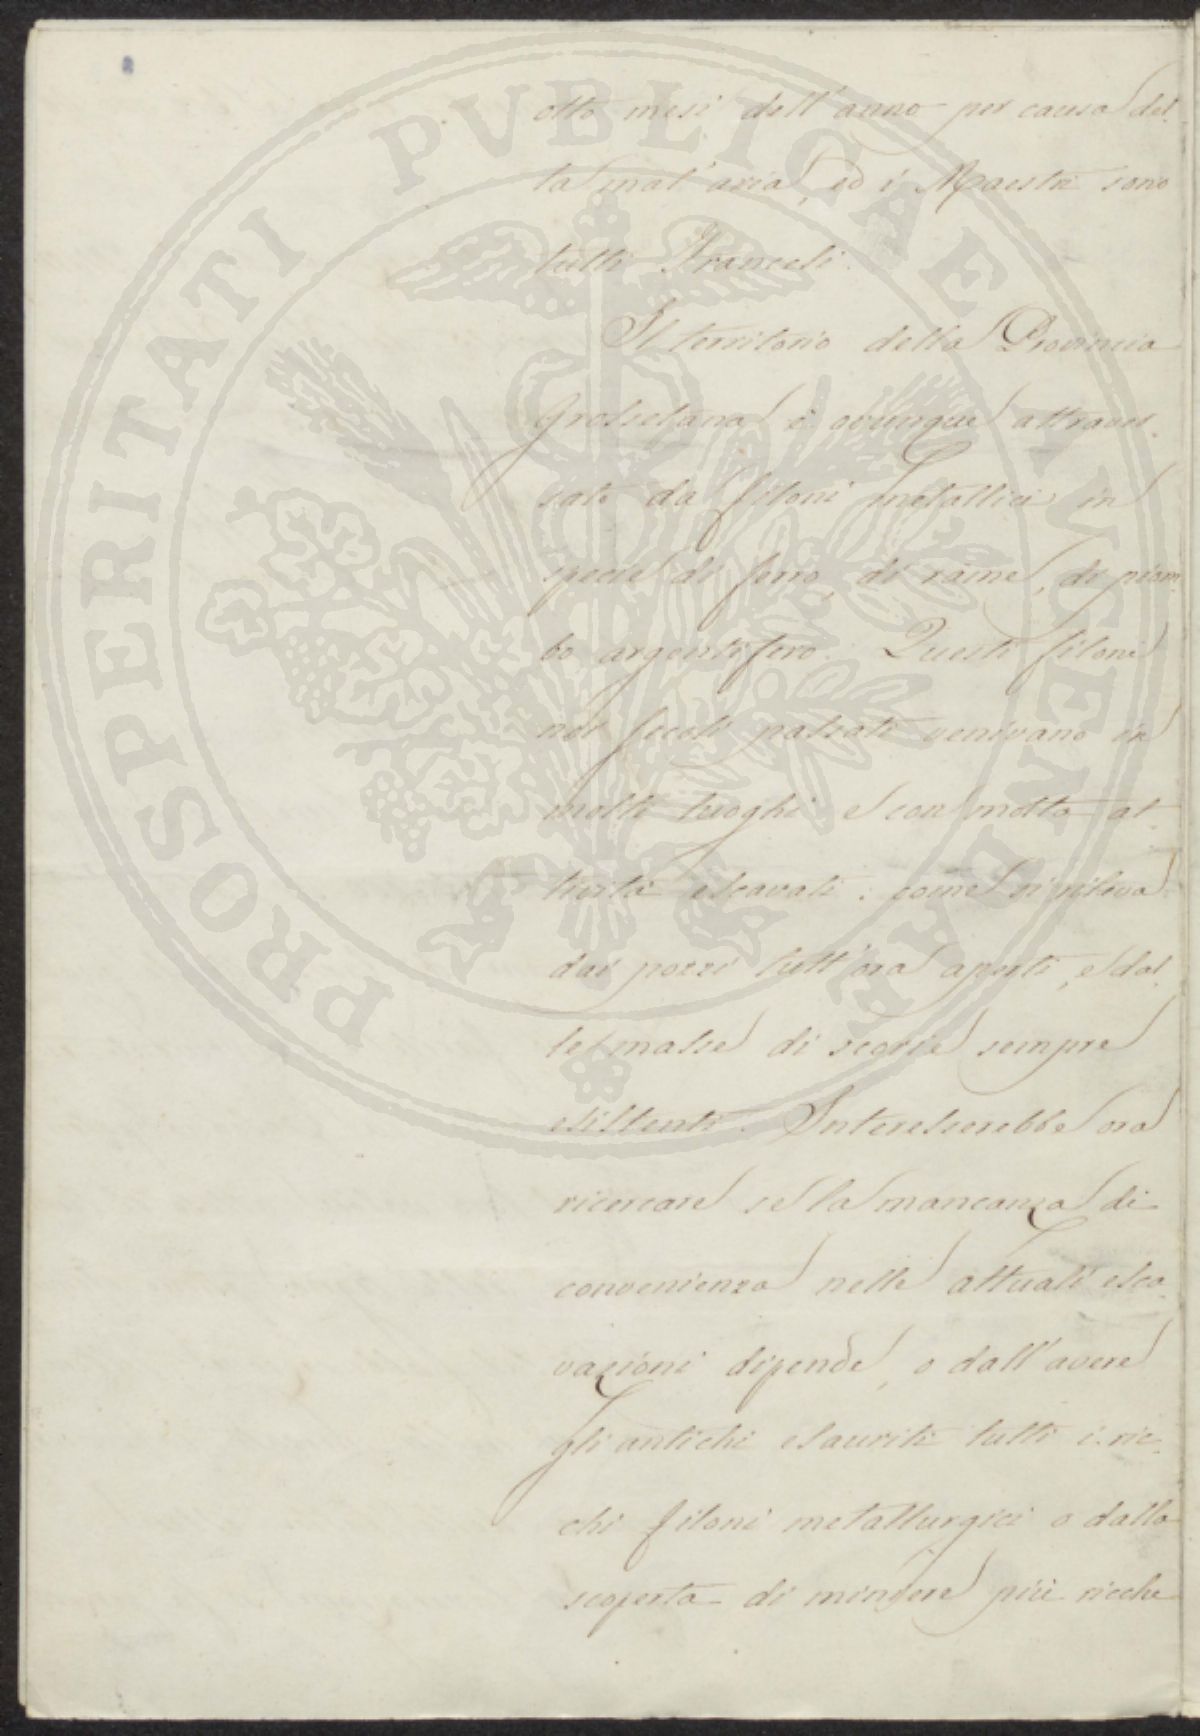 otto mesi dell'anno per causa del-
la mal'aria, ed i Maestri sono
tutti Francesi.
Il territorio della Provincia
Grossetana è ovunque attraver-
sato da filoni metallici in
specie di ferro, di rame, di piom
bo argentifero. Questi filoni
nei secoli passati venivano in
molti luoghi e con molta at-
tività escavati: come si rileva
dai pozzi tutt'ora aperti, e dal-
le masse di scorie sempre
esistenti. Interesserebbe ora
ricercare se la mancanza di
convenienza nelle attuali esca-
vazioni dipende, o dall'avere
gli antichi esauriti tutti i ric-
chi filoni metallurgici o dalla
scoperta di miniere più ricche
PROSPERITATI PVBLICAE AVGENDAE